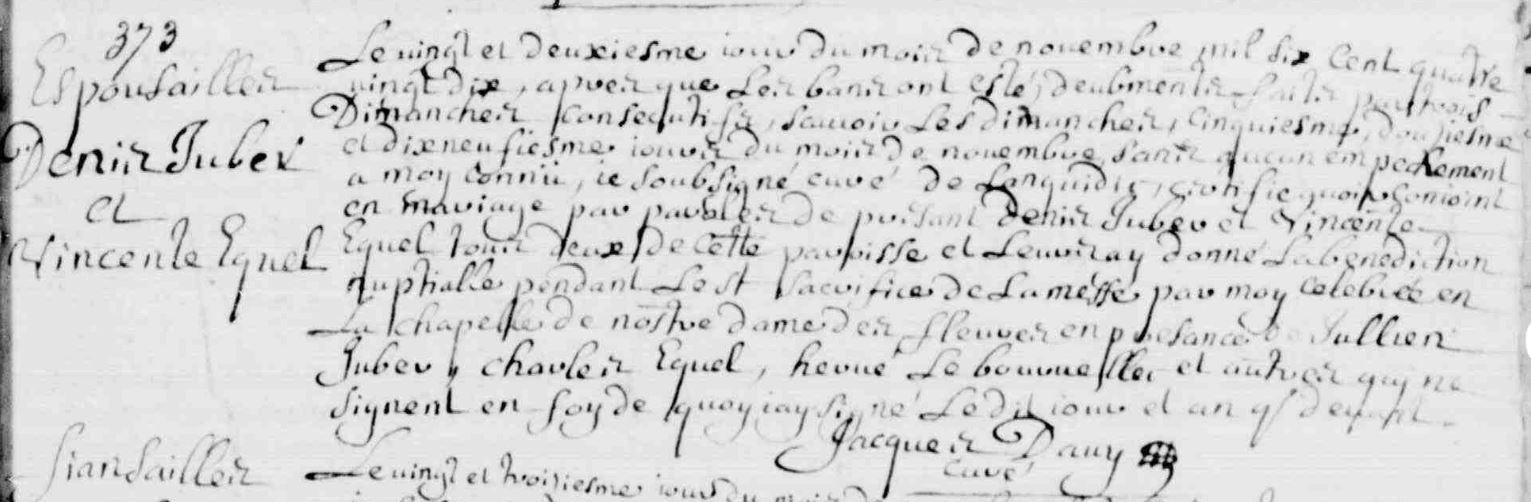 373
Espousailles
Denis Juber
et
Vincente Equel
Le vingt et deuxiesme iour du mois de novembre mil six cent quatre
vingt dix, apres que les bans ont esté deubments faits par trois
Dimanches consecutifs, scavoir les dimanches, cinquiesme, douziesme
et dixneufiesme iours du mois de novembre, sans aucun empechement
a moy connu, ie soubsigné curé de Languidic, certifie avoir conioint
en mariage par parolles de presant Denis Juber et Vincente
Equel tous deux de cette paroisse et leurs ay donné la benediction
nuptialle pendant le st sacrifice de la messe par moy celebrée en
la chapelle de nostre dame des fleuves en presance de Jullien
Juber, Charles Equel, hervé Le bouruellec et autres qui ne
signent en foy de quoy iay signé le dit iour et an q/ devant
Jacques Davy
curé
fiansailles
Le vingt et troisiesme iour du mois de